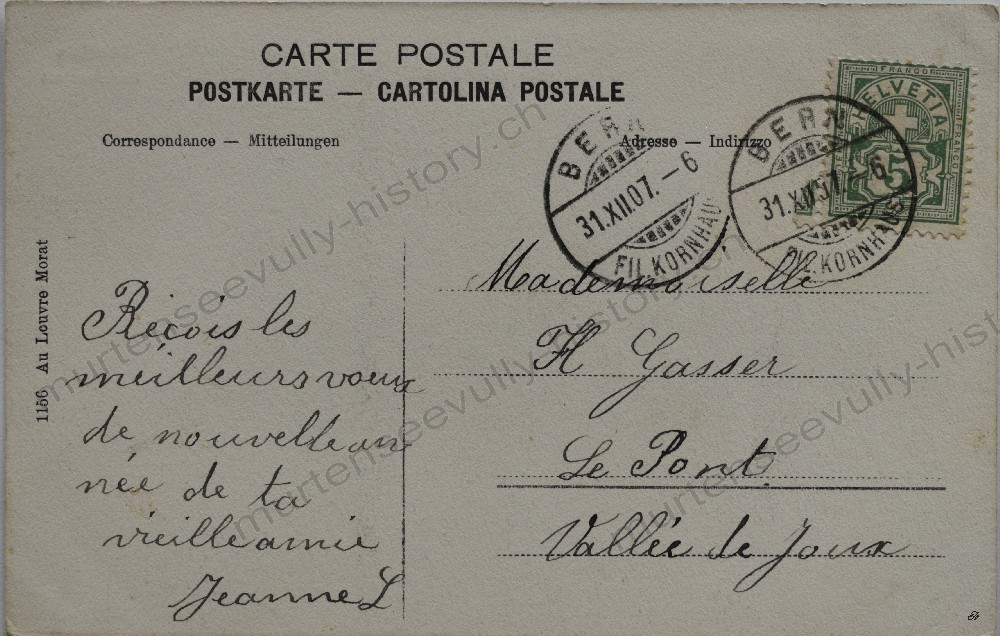 CARTE POSTALE
POSTKARTE — CARTOLINA POSTALE
Correspondance — Mitteilungen
Adresse — Indirizzo
BERN
31.XII.07. – 6
FIL. KORNHAUS
BERN
31.XII 07. – 6
FIL. KORNHAUS
FRANCO
HELVETIA
5
1156 Au Louvre Morat
Reçois les
meilleurs voeux
de nouvelle an
née de ta
vieille amie
Jeanne L
Mademoiselle
H Gasser
Le Pont
Vallée de Joux
murtenseevully-history.ch
murtenseevully-history.ch
murtenseevully-history